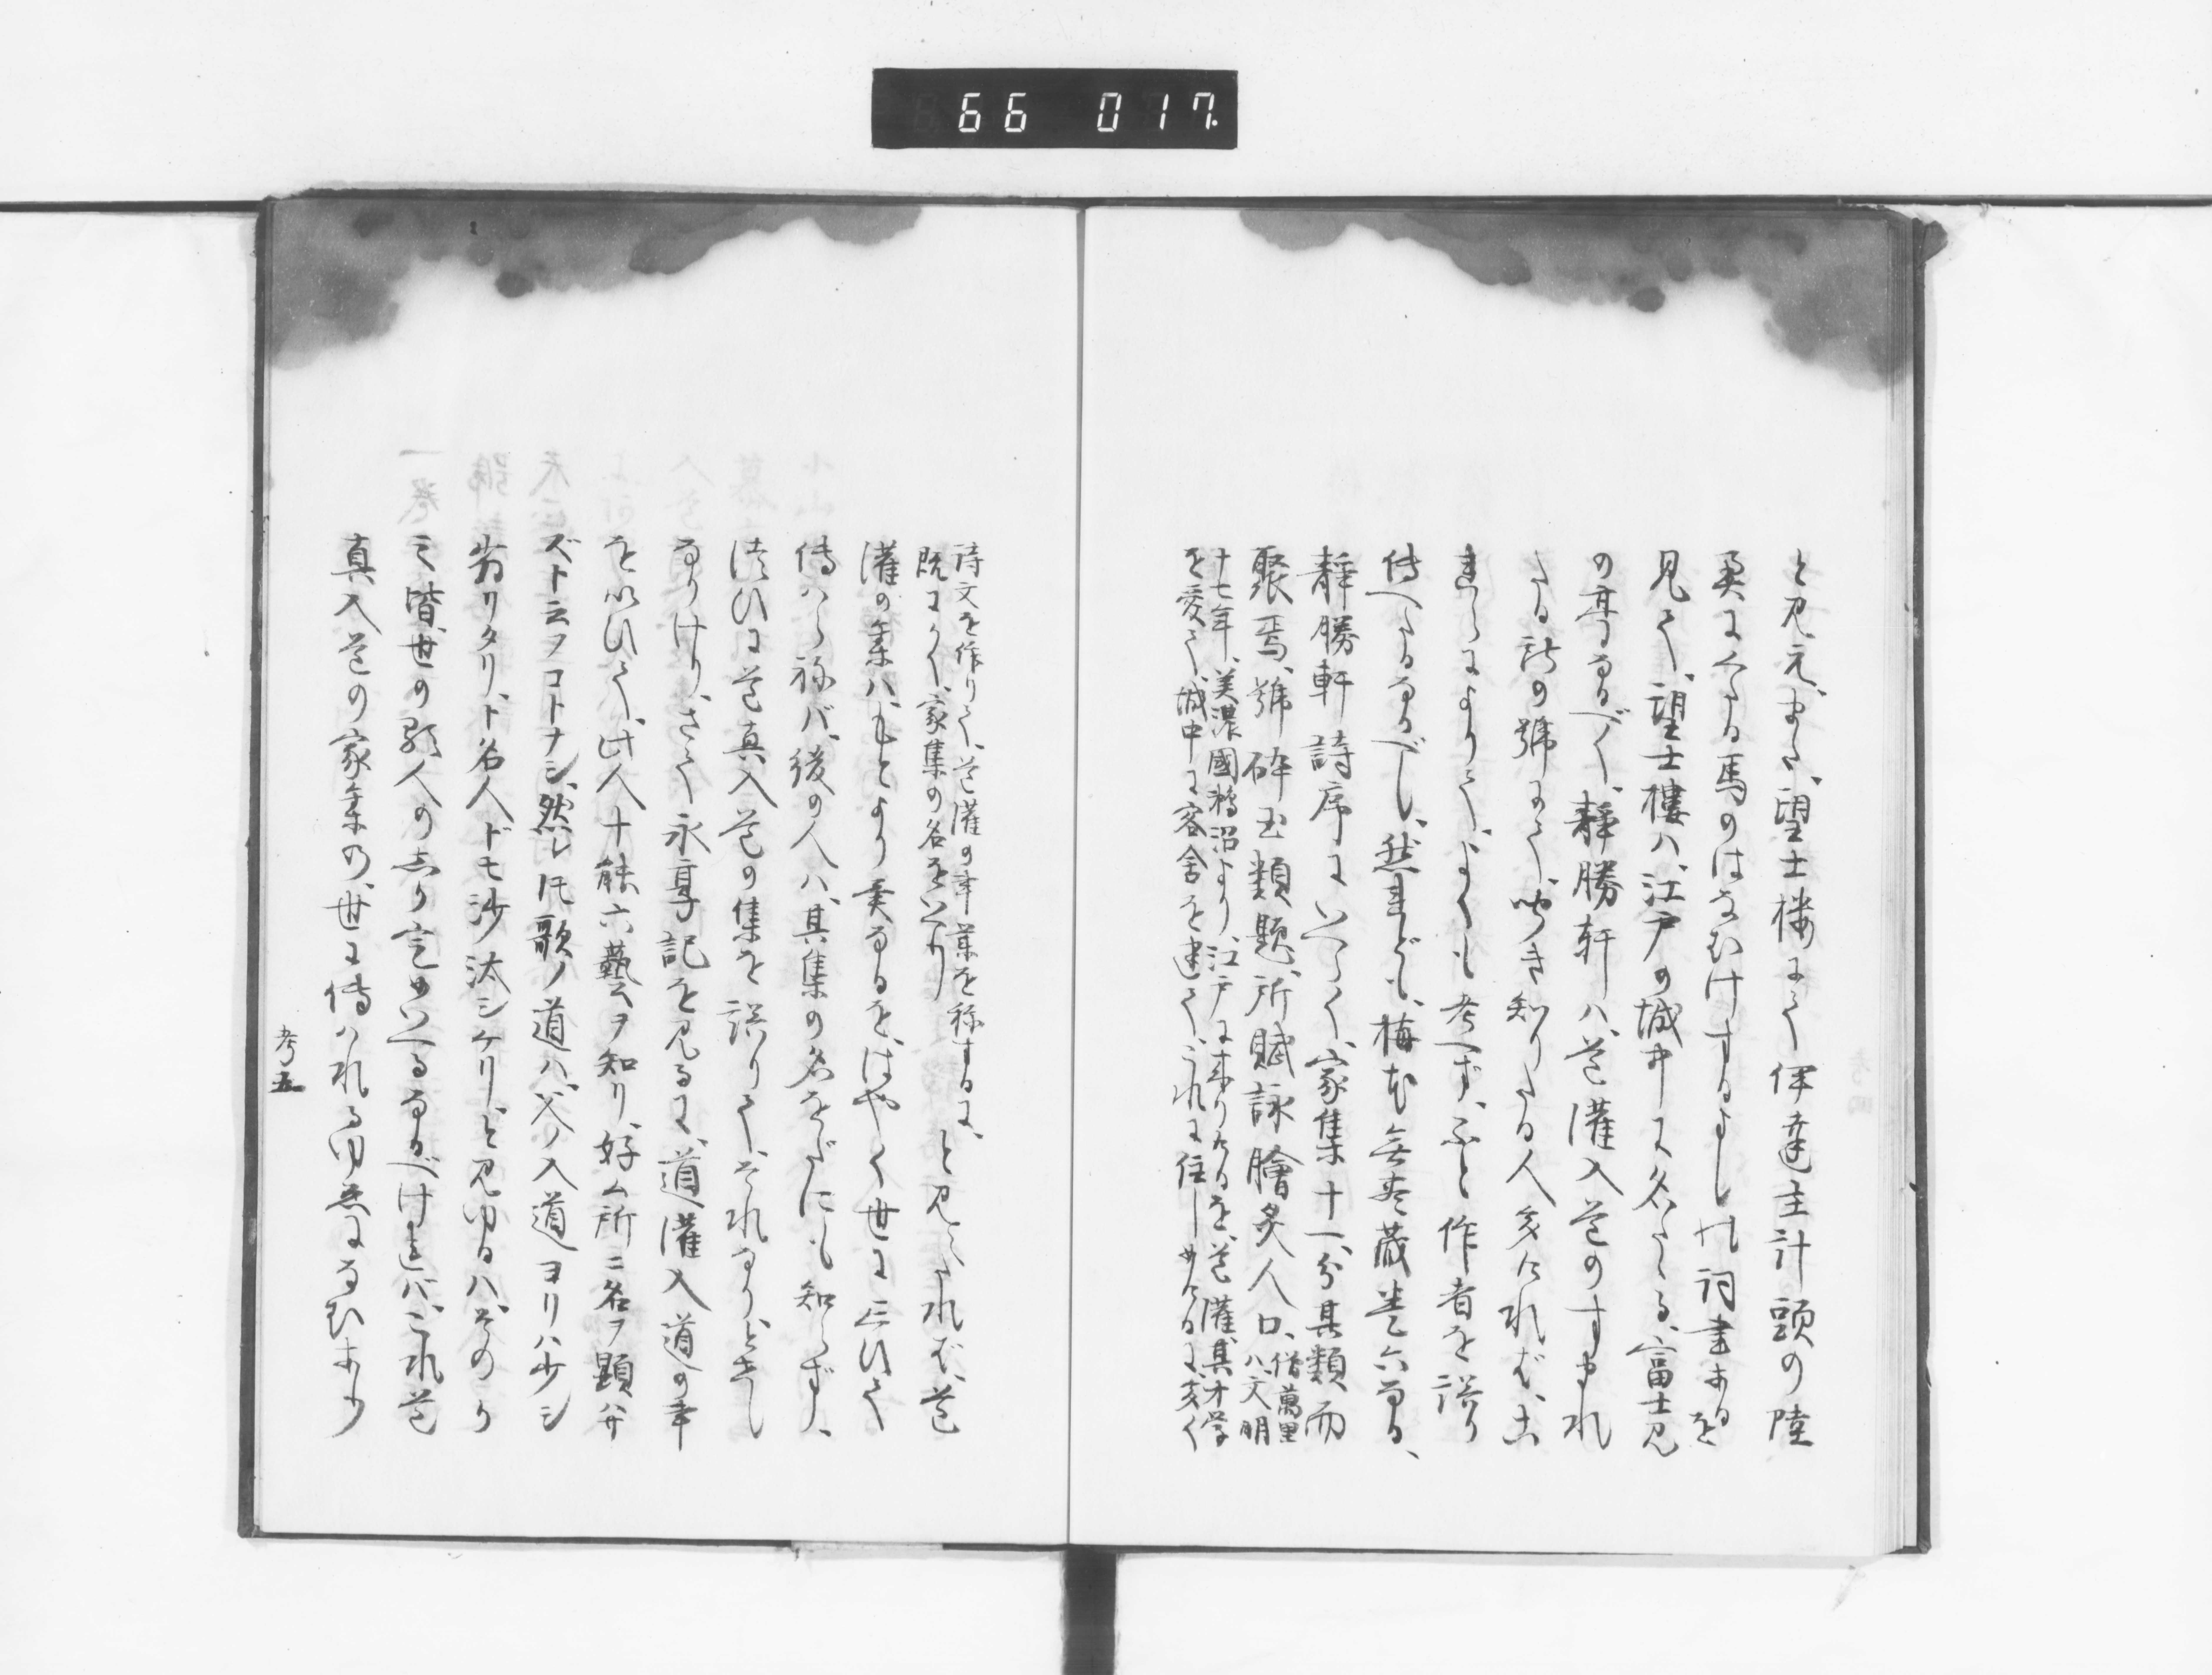 66 017
と見え、また、望士楼にて伊達主計頭の陸
奥にくたる馬のはなむけするよし、の詞書あるを
見て、望士樓ハ、江戸の城中に名たゝる、富士見
の亭なるべく、靜勝軒ハ、道灌入道のすまれ
たる所の號にて、聞き知りたる人多けれバ、古
きによりて、よくも考へず、ふと作者を誤り
傳へたるなるべし、然れども、梅花無盡蔵巻六なる、
靜勝軒詩序にいへらく、家集十一、分其類而
聚焉、號砕玉類題、所賦詠膾炙人口、僧萬里ハ、文明
十七年、美濃國鵜沼より、江戸に来りけるを、道灌、其才学
を愛て、城中に客舍を建て、これに住しめけるに、多く
詩文を作りて、道灌の事業を称するに、
既にかく、家集の名をいへり
と見えたれバ、道
灌の集ハ、もとより実なるを、はやく世に亡ひて
傳ハらねバ、後の人ハ、其集の名をだにも知らず、
終ひに道真入道の集を誤りて、それなり、とさへし
なりけり、さて永享記を見るに、道灌入道の事
を以ひて、此人十能六藝ヲ知リ、好ム所ニ名ヲ顕ハサ
ズト云フコトナシ、然レ𪜈歌ノ道ハ、父ノ入道ヨリハ少シ
劣リタリ、ト名人ドモ沙汰シケリ、と見ゆるハ、そのか
ミ皆世の歌人の志り定めいへるなるべけれバ、これ道
真入道の家集の、世に傳ハれるゆゑになむあり
考五